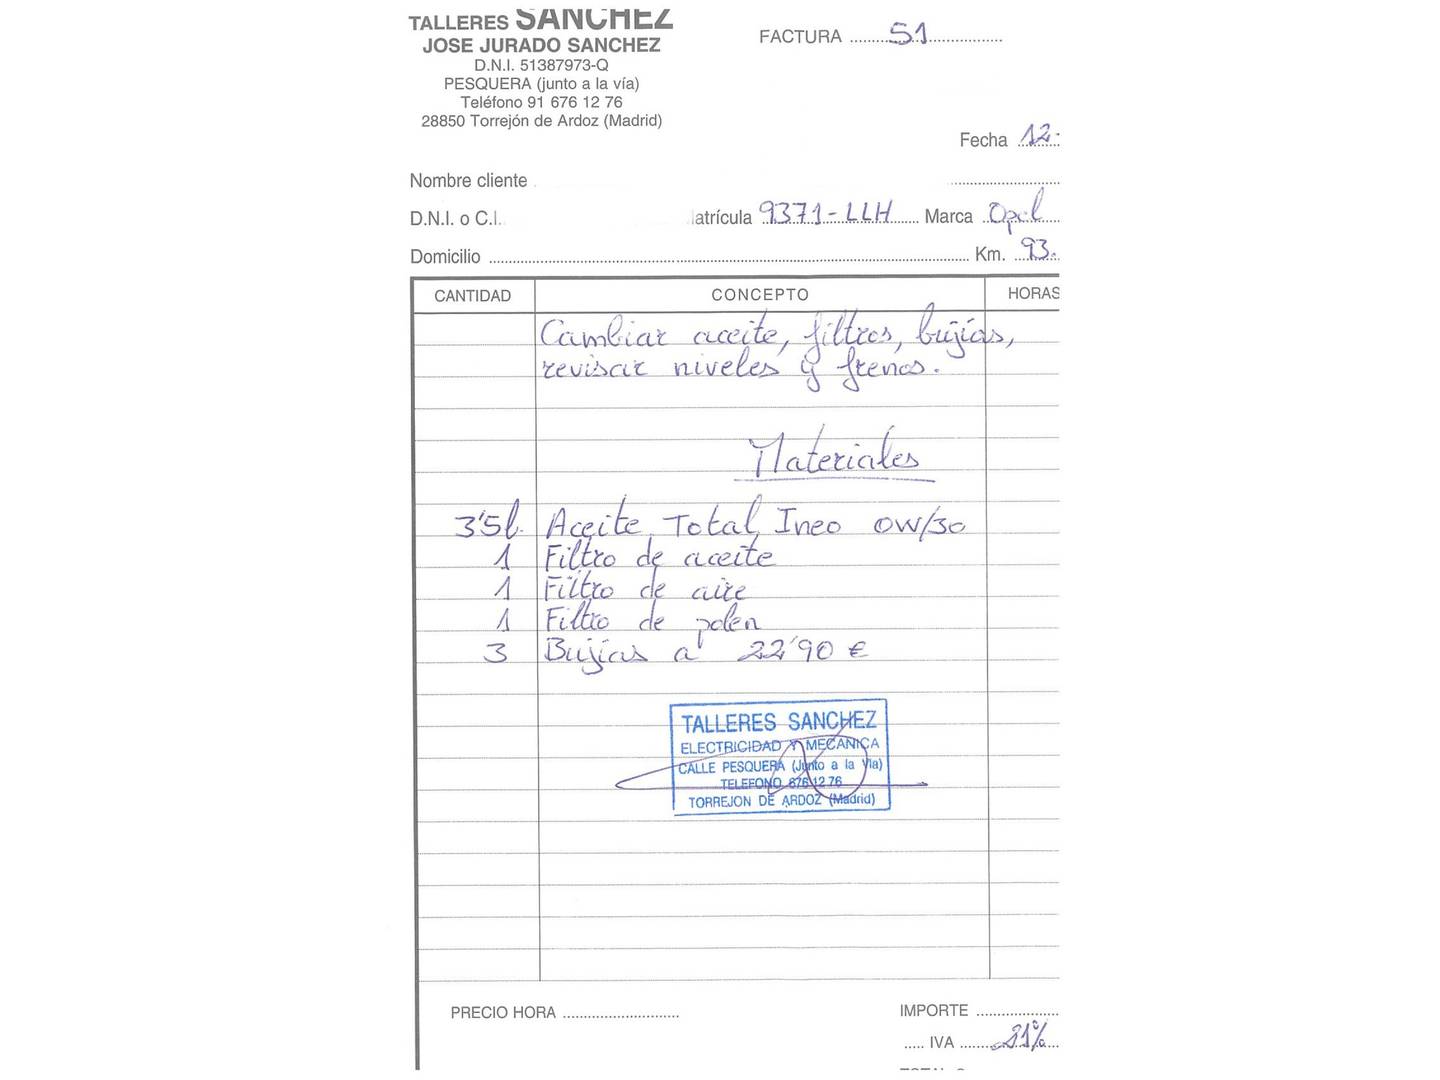 TALLERES SANCHEZ
JOSE JURADO SANCHEZ
D.N.I. 51387973-Q
PESQUERA (junto a la vía)
Teléfono 91 676 12 76
28850 Torrejón de Ardoz (Madrid)
FACTURA 51
Fecha 12-
Nombre cliente
D.N.I. o C.I. atrícula 9371-LLH Marca Opel
Domicilio Km. 93.
CANTIDAD CONCEPTO HORAS
Cambiar aceite, filtros, bujías,
revisar niveles y frenos.
Materiales
3'5l. Aceite Total Ineo 0W/30
1 Filtro de aceite
1 Filtro de aire
1 Filtro de polen
3 Bujías a 22'90 €
TALLERES SANCHEZ
ELECTRICIDAD Y MECANICA
CALLE PESQUERA (Junto a la Vía)
TELEFONO 676 12 76
TORREJON DE ARDOZ (Madrid)
PRECIO HORA IMPORTE
IVA 21%